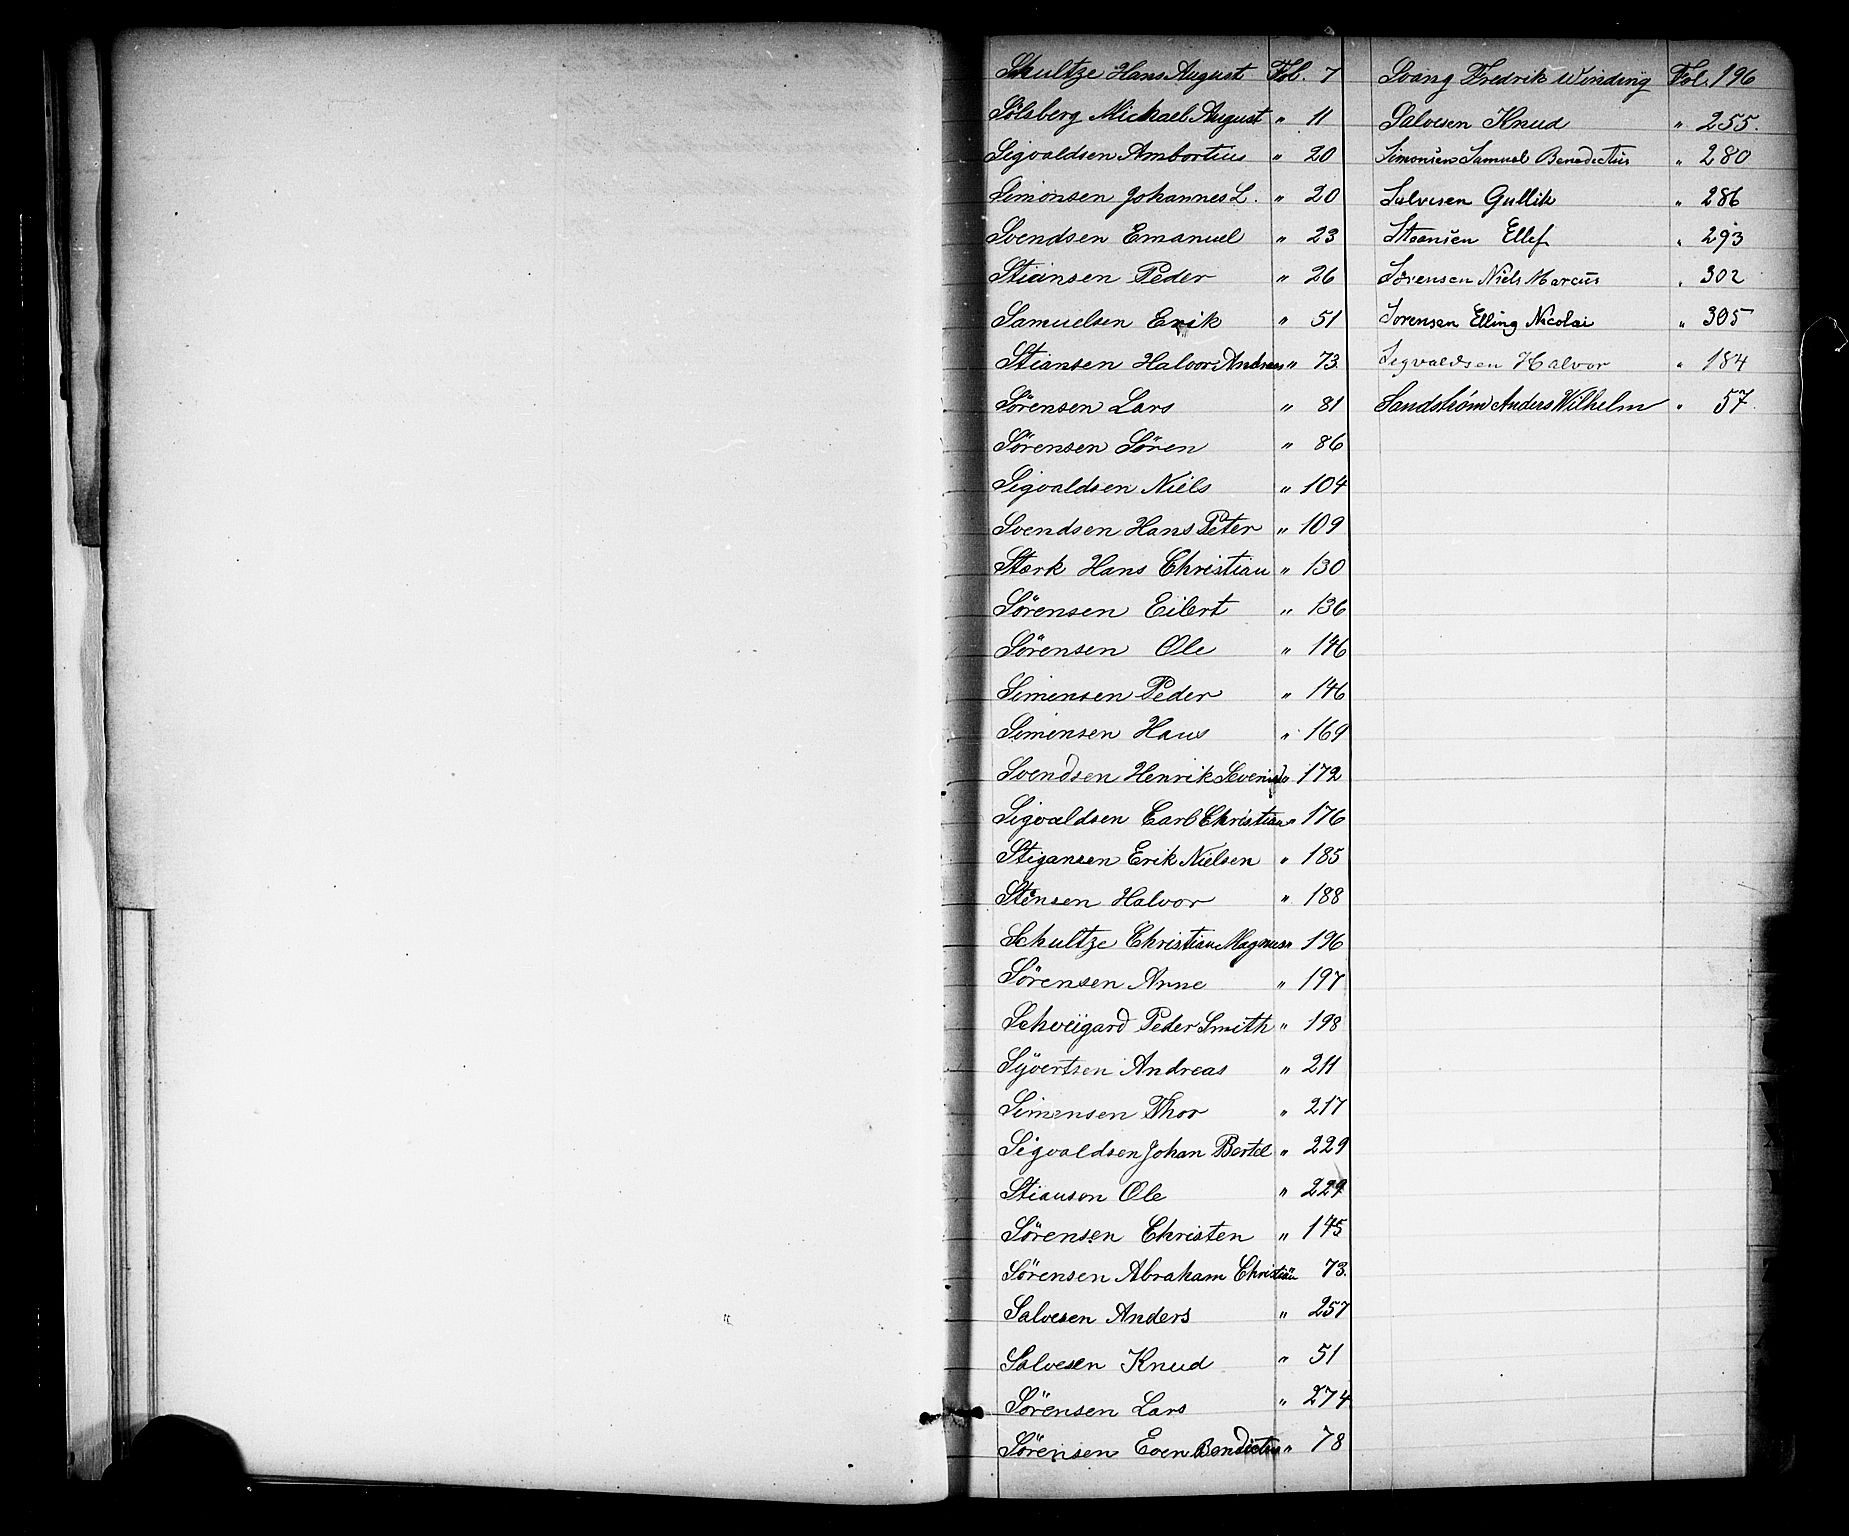 Schultze Hans August Fol. 7
Sölsberg Michael August " 11
Sigvaldsen Ambortius " 20
Simonsen Johannes L. " 20
Svendsen Emanuel " 23
Stiansen Peder " 26
Samuelsen Erik " 51
Stiansen Halvor Andreas " 73.
Sörensen Lars " 81
Sörensen Sören " 86
Sigvaldsen Niels " 104
Svendsen Hans Peter " 109
Stærk Hans Christian " 130
Sörensen Eilert " 136
Sörensen Ole " 146
Simensen Peder " 146
Simensen Hans " 169
Svendsen Henrik " 172
Sigvaldsen Carl Christian " 176
Stigansen Erik Nielsen " 185
Stensen Halvor " 188
Schultze Christian Magnus " 196
Sörensen Arne " 197
Schveigard Peder Smith " 198
Syvertsen Andreas " 211
Simensen Thor " 217
Sigvaldsen Johan Bertel " 229
Stianson Ole " 229
Sörensen Christen " 145
Sörensen Abraham Christian 73.
Salvesen Anders " 257
Salvesen Knud " 51
Sörensen Lars " 274
Sörensen Even Bendictus " 78
Svang Fredrik Winding Fol. 196
Salvesen Knud " 255.
Simonsen Samuel Benedictus " 280
Salvesen Gullik " 286
Steansen Ellef " 293
Sörensen Niels Marcus " 302
Sorensen Elling Nicolai " 305
Sigvaldsen Halvor " 184
Sandstrøm Anders Wilhelm " 57.